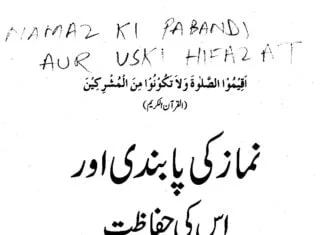 NAMAZ KI PABANDI
AUR USKI HIFAZAT
اَقِيْمُوا الصَّلٰوةَ وَلَا تَكُوْنُوْا مِنَ الْمُشْرِكِيْنَ
(القرآن الکریم)
نماز کی پابندی اور
اس کی حفاظت